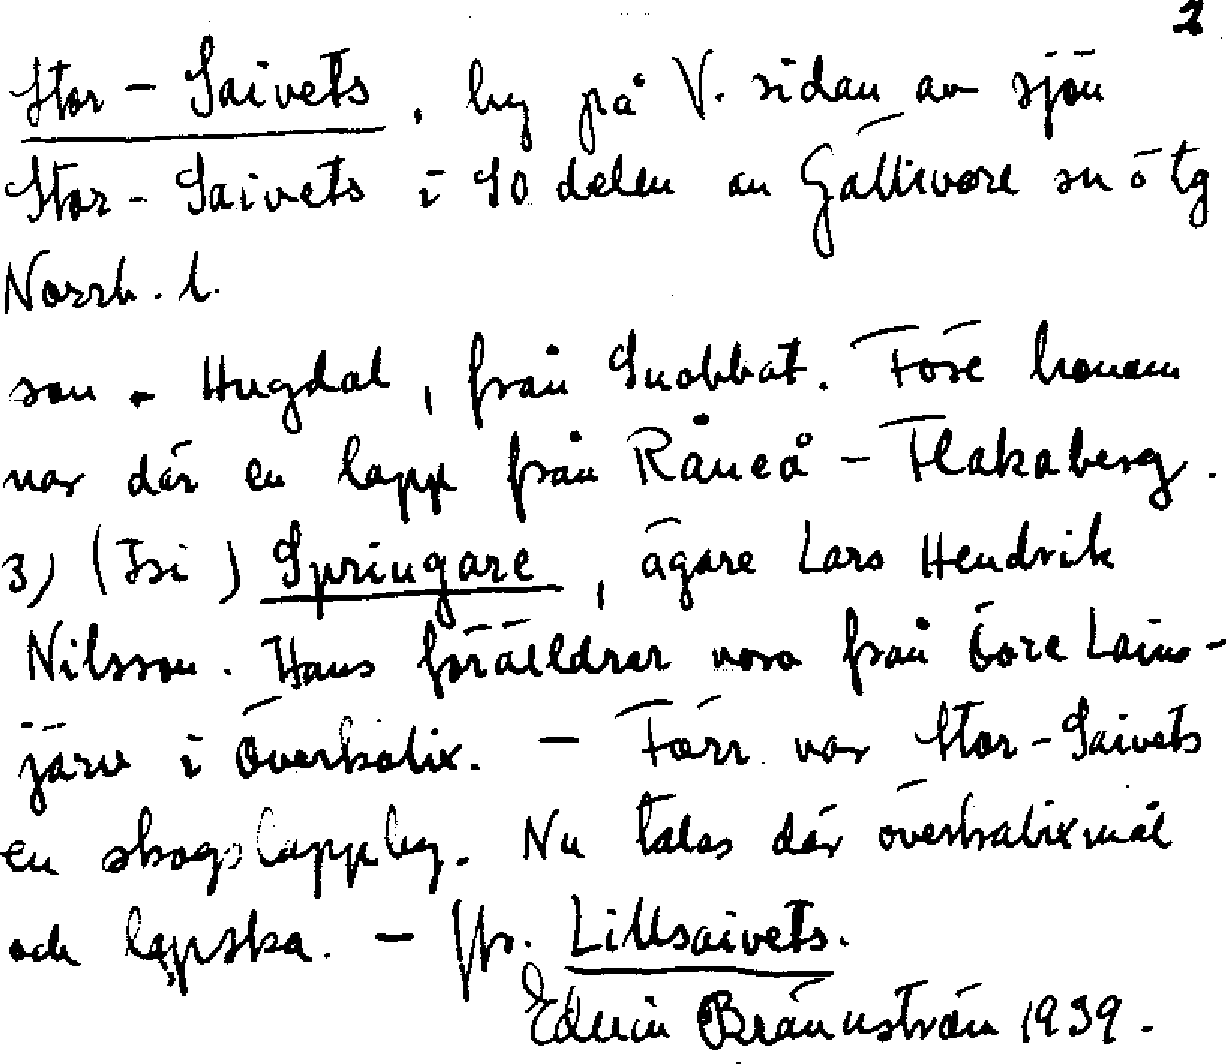 2
Stor-Saivets, by på V. sidan av sjön
Stor-Saivets i SO delen av Gällivare sn o tg
Norrb. l.
son - Hugdal, från Snobbat. Före honom
var där en lapp från Råneå - Flakaberg.
3) (Isi) Springare, ägare Lars Hendrik
Nilsson. Hans föräldrar voro från Övre Lains-
järv i Överkalix. - Förr var Stor-Saivets
en skogslappby. Nu talas där överkalixmål
och lapska. - Jfr. Lillsaivets.
Edvin Brännström 1939.